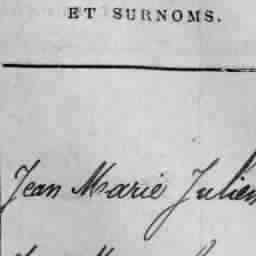 ET SURNOMS.
Jean Marie Julien